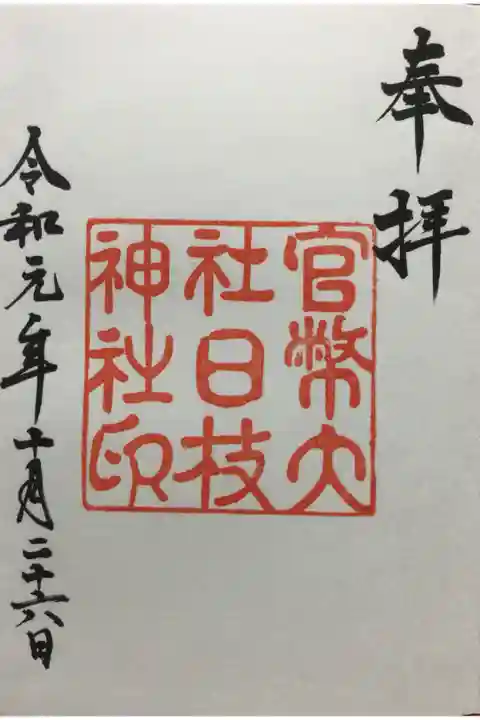 奉拝
官幣大
社日枝
神社印
令和元年十月二十六日